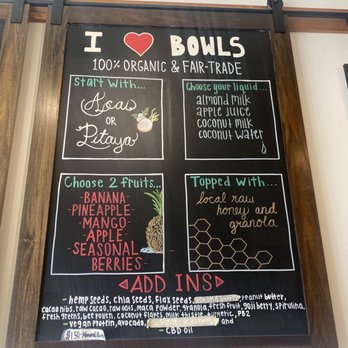 I ❤ BOWLS
100% ORGANIC & FAIR-TRADE
Start With...
Acai
OR
Pitaya
Choose your liquid...
almond milk
apple juice
coconut milk
coconut water
Choose 2 fruits...
-BANANA-
-PINEAPPLE-
-MANGO-
-APPLE-
SEASONAL
BERRIES
Topped with...
local raw
honey and
granola
ADD INS
- hemp seeds, chia seeds, flax seeds, peanut butter,
cacao nibs, raw cacao, raw oats, maca powder, granola, fresh fruit, goji berry, spirulina,
fresh greens, bee pollen, coconut flakes, milk thistle, turmeric, PB2
- vegan protein, avocado, and
- CBD oil
$1.50 Almond